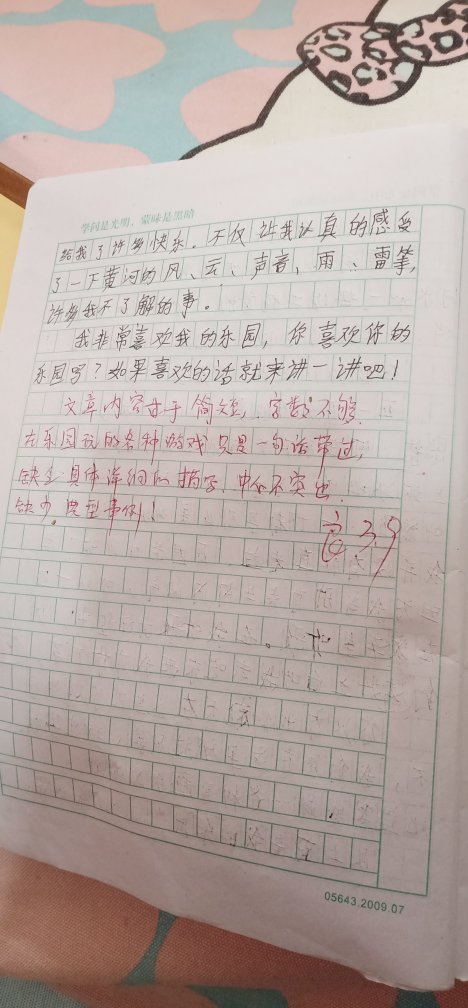 学问是光明，蒙昧是黑暗
给我了许多快乐。不仅让我认真的感受
了一下黄河的风、云、声音、雨、雷等，
许多我不了解的事。
我非常喜欢我的乐园，你喜欢你的
乐园吗？如果喜欢的话就来讲一讲吧！
文章内容过于简短，字数不够，
在乐园玩的各种游戏只是一句话带过，
缺乏具体详细的描写，中心不突出，
缺少典型事例！
39
05643.2009.07